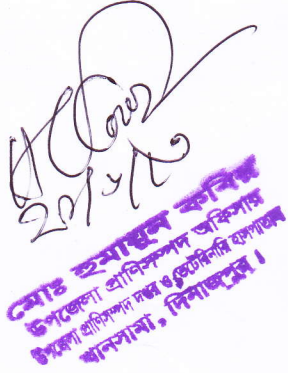 মোঃ হুমায়ুন কবির
উপজেলা প্রাণিসম্পদ অফিসার
উপজেলা প্রাণিসম্পদ দপ্তর ও ভেটেরিনারি হাসপাতাল
খানসামা, দিনাজপুর।